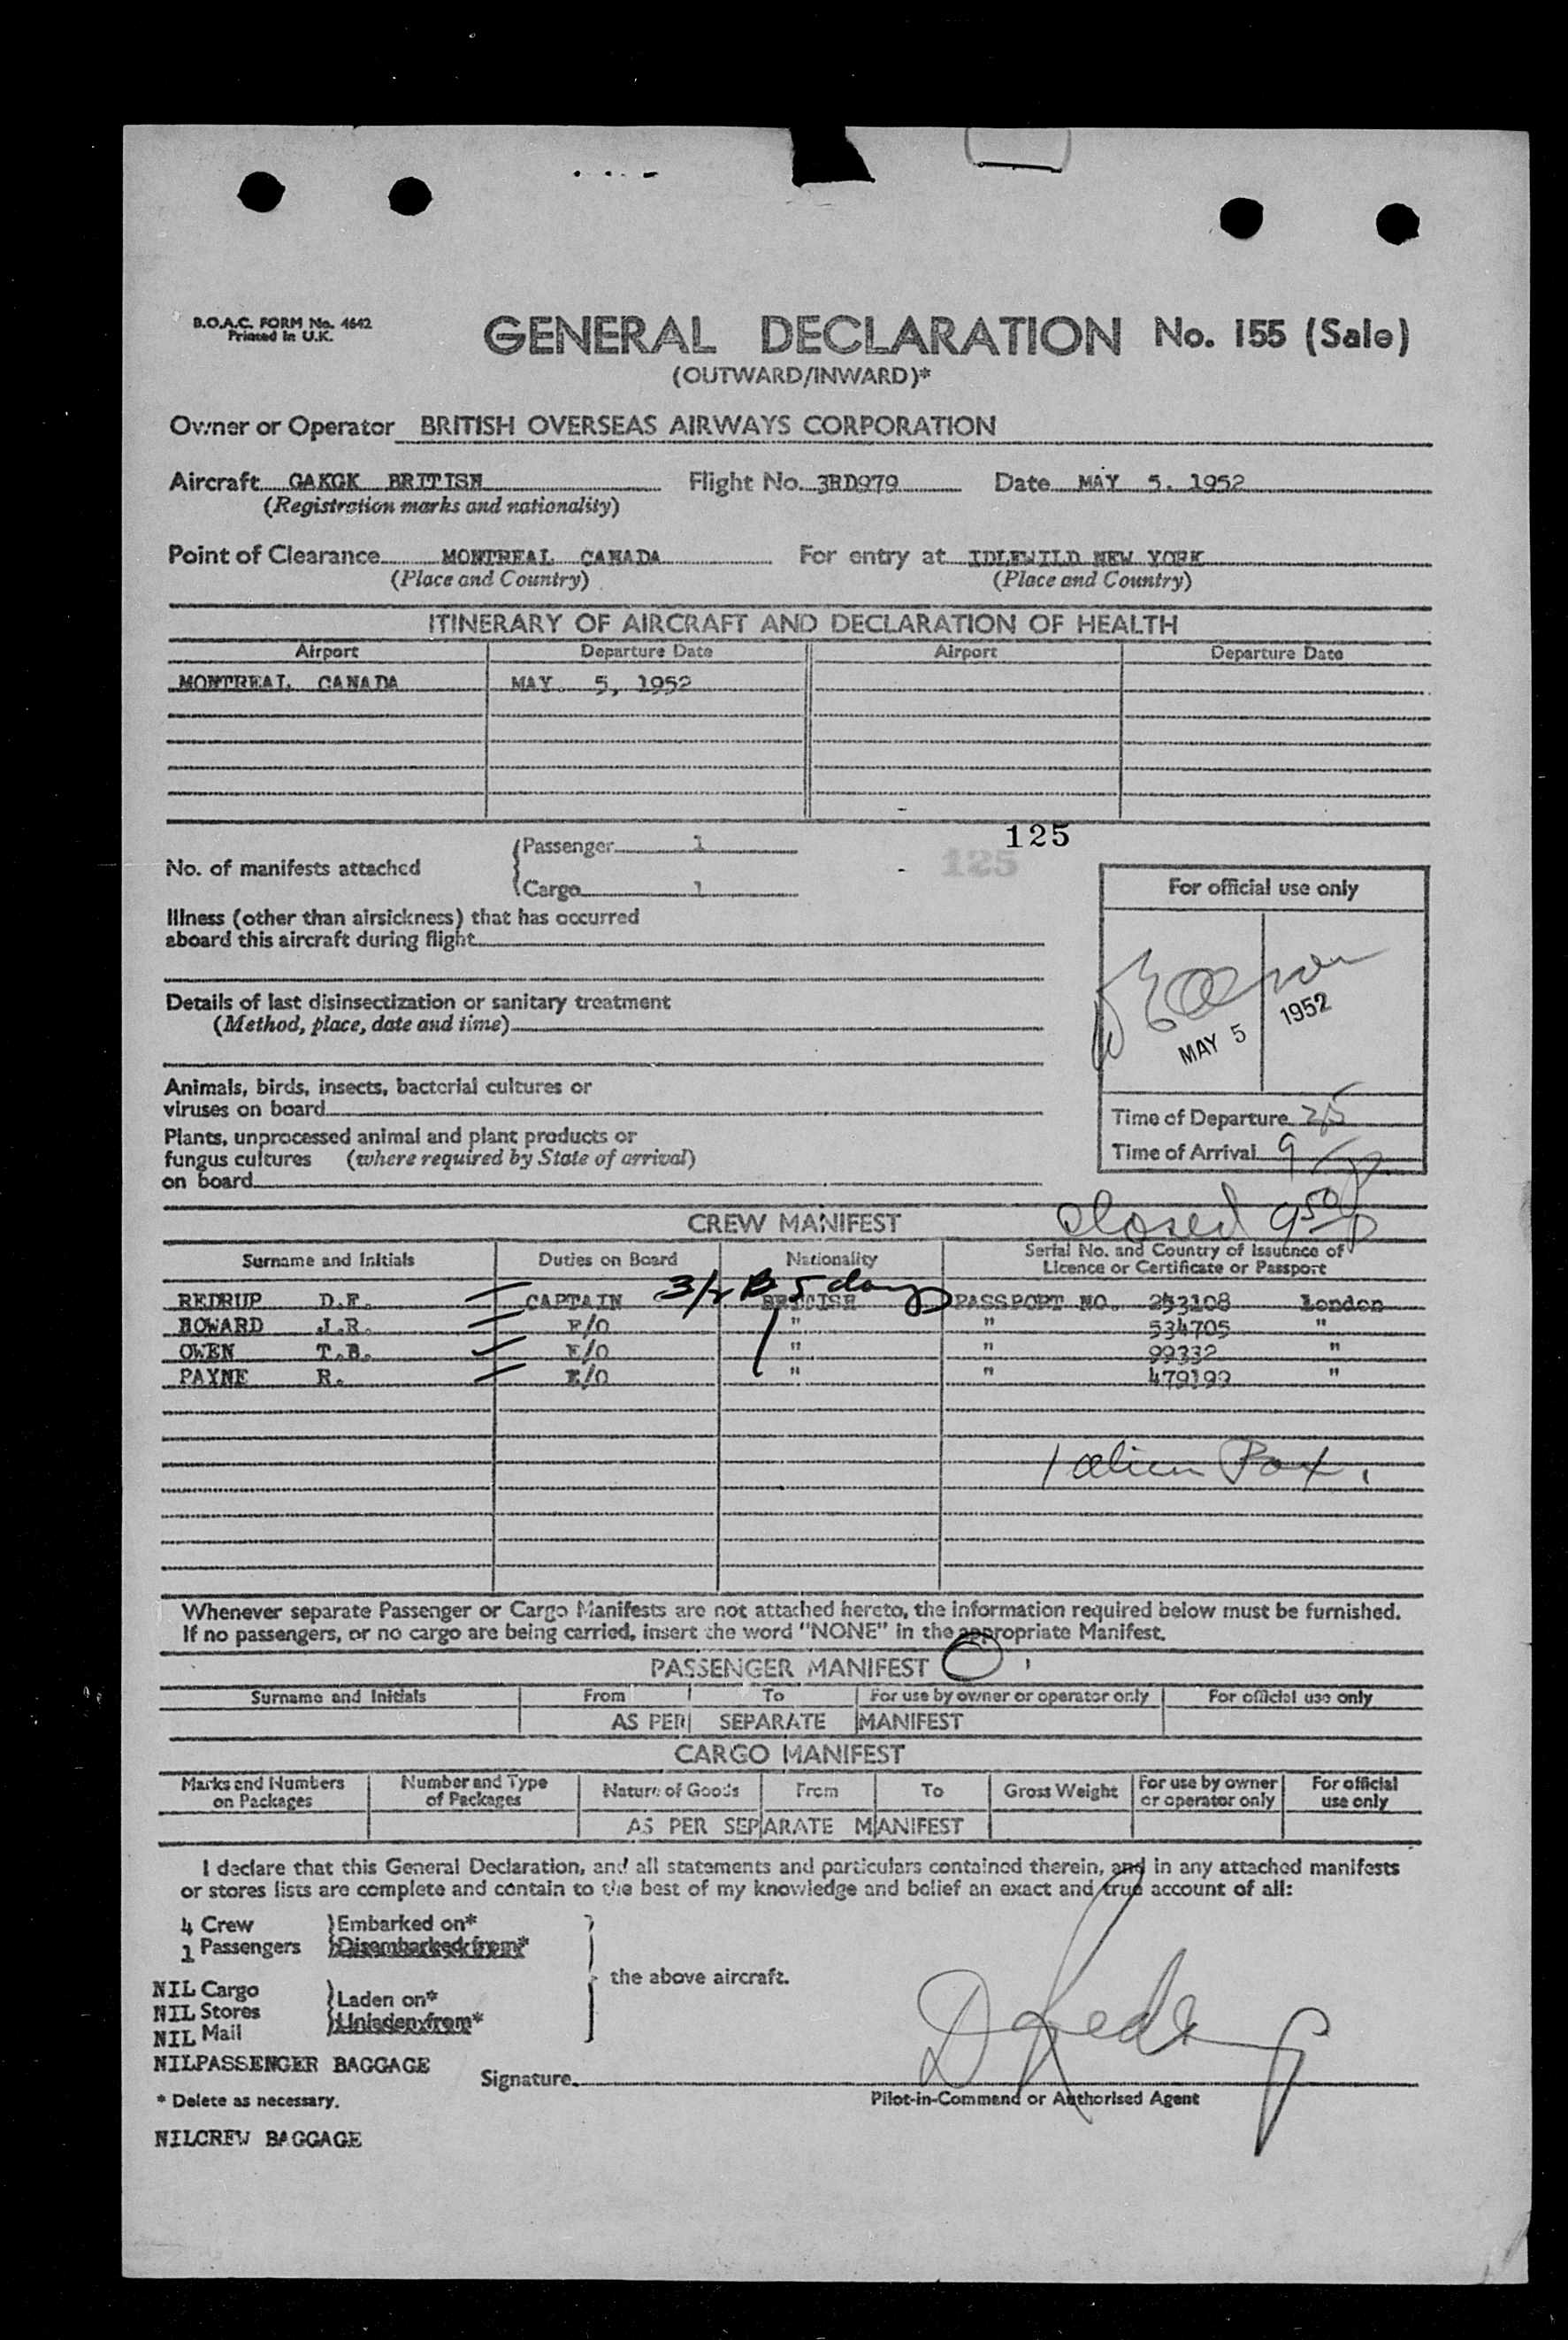 B.O.A.C. FORM No. 4642
Printed in U.K.
GENERAL DECLARATION No. 155 (Sale)
(OUTWARD/INWARD)*
Owner or Operator BRITISH OVERSEAS AIRWAYS CORPORATION
Aircraft GAKGK BRITISH Flight No. 3RD979 Date MAY 5, 1952
(Registration marks and nationality)
Point of Clearance MONTREAL CANADA For entry at IDLEWILD NEW YORK
(Place and Country) (Place and Country)
ITINERARY OF AIRCRAFT AND DECLARATION OF HEALTH
Airport Departure Date Airport Departure Date
MONTREAL CANADA MAY. 5, 1952
125
125
No. of manifests attached
Passenger 1
Cargo 1
For official use only
Illness (other than airsickness) that has occurred
aboard this aircraft during flight
Details of last disinsectization or sanitary treatment
(Method, place, date and time)
MAY 5 1952
Animals, birds, insects, bacterial cultures or
viruses on board
Time of Departure
Plants, unprocessed animal and plant products or
fungus cultures (where required by State of arrival)
on board
Time of Arrival 9
closed 9 50
CREW MANIFEST
Surname and Initials Duties on Board Nationality Serial No. and Country of Issuance of
Licence or Certificate or Passport
3/2 B 5 days
REDRUP D.F. CAPTAIN BRITISH PASSPORT NO. 253108 London
HOWARD J.R. F/O " " 534705 "
OWEN T.B. F/O " " 99332 "
PAYNE R. E/O " " 479199 "
1 alien Pax.
Whenever separate Passenger or Cargo Manifests are not attached hereto, the information required below must be furnished.
If no passengers, or no cargo are being carried, insert the word "NONE" in the appropriate Manifest.
PASSENGER MANIFEST
Surname and Initials From To For use by owner or operator only For official use only
AS PER SEPARATE MANIFEST
CARGO MANIFEST
Marks and Numbers on Packages Number and Type of Packages Nature of Goods From To Gross Weight For use by owner or operator only For official use only
AS PER SEPARATE MANIFEST
I declare that this General Declaration, and all statements and particulars contained therein, and in any attached manifests
or stores lists are complete and contain to the best of my knowledge and belief an exact and true account of all:
4 Crew Embarked on*
1 Passengers Disembarked from*
the above aircraft.
NIL Cargo Laden on*
NIL Stores Unladen from*
NIL Mail
NILPASSENGER BAGGAGE
Signature
* Delete as necessary. Pilot-in-Command or Authorised Agent
NILCREW BAGGAGE